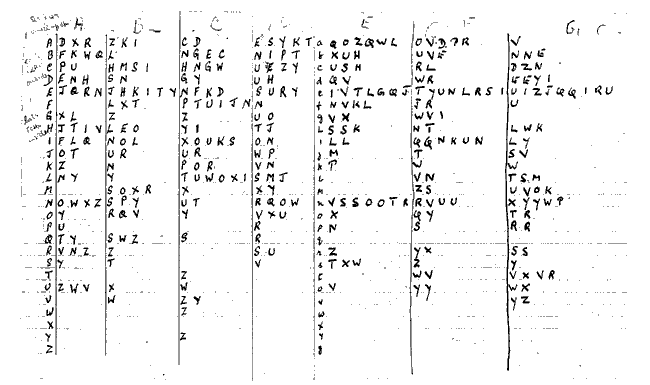 A B C D E F G
A DXR ZKI CD ESYKT a QOZQWL OVDPR V
B FKWQ L NGEC NIPT KXUH UVE NNE
C PU HMSI HNGW UEZY CUSH RL DZN
D ENH SN GY UH QV WR GEYI
E JQRN JHKITY NFKD SURY IVTLGQJ TYUNLRSI UIZJQQIRU
F LXT PTUIJN N NVKL JR U
G XL Z Z UO VX WVI
H JTIV LEO YI TJ LSSK NT LWK
I FLQ NOL XOUKS ON LL QGNKUN LY
J OT UR UR WP M T SV
K Z N POR VN P W W
L NY Y TUWOXI SMJ VN TSM
M SOXR X XY ZS UVOK
N OWXZ SPY UT RQOW XVSSOOTR RVUU XYYWP
O Y RQV Y VXU X QY TR
P U R PN S RR
Q TY SWZ S R
R VNZ Z SU Z YX SS
S Y T V TXW Z Y
T Z WV VXVR
U ZWV X W V YY WX
V W ZY YZ
W Z
X
Y
Z Z